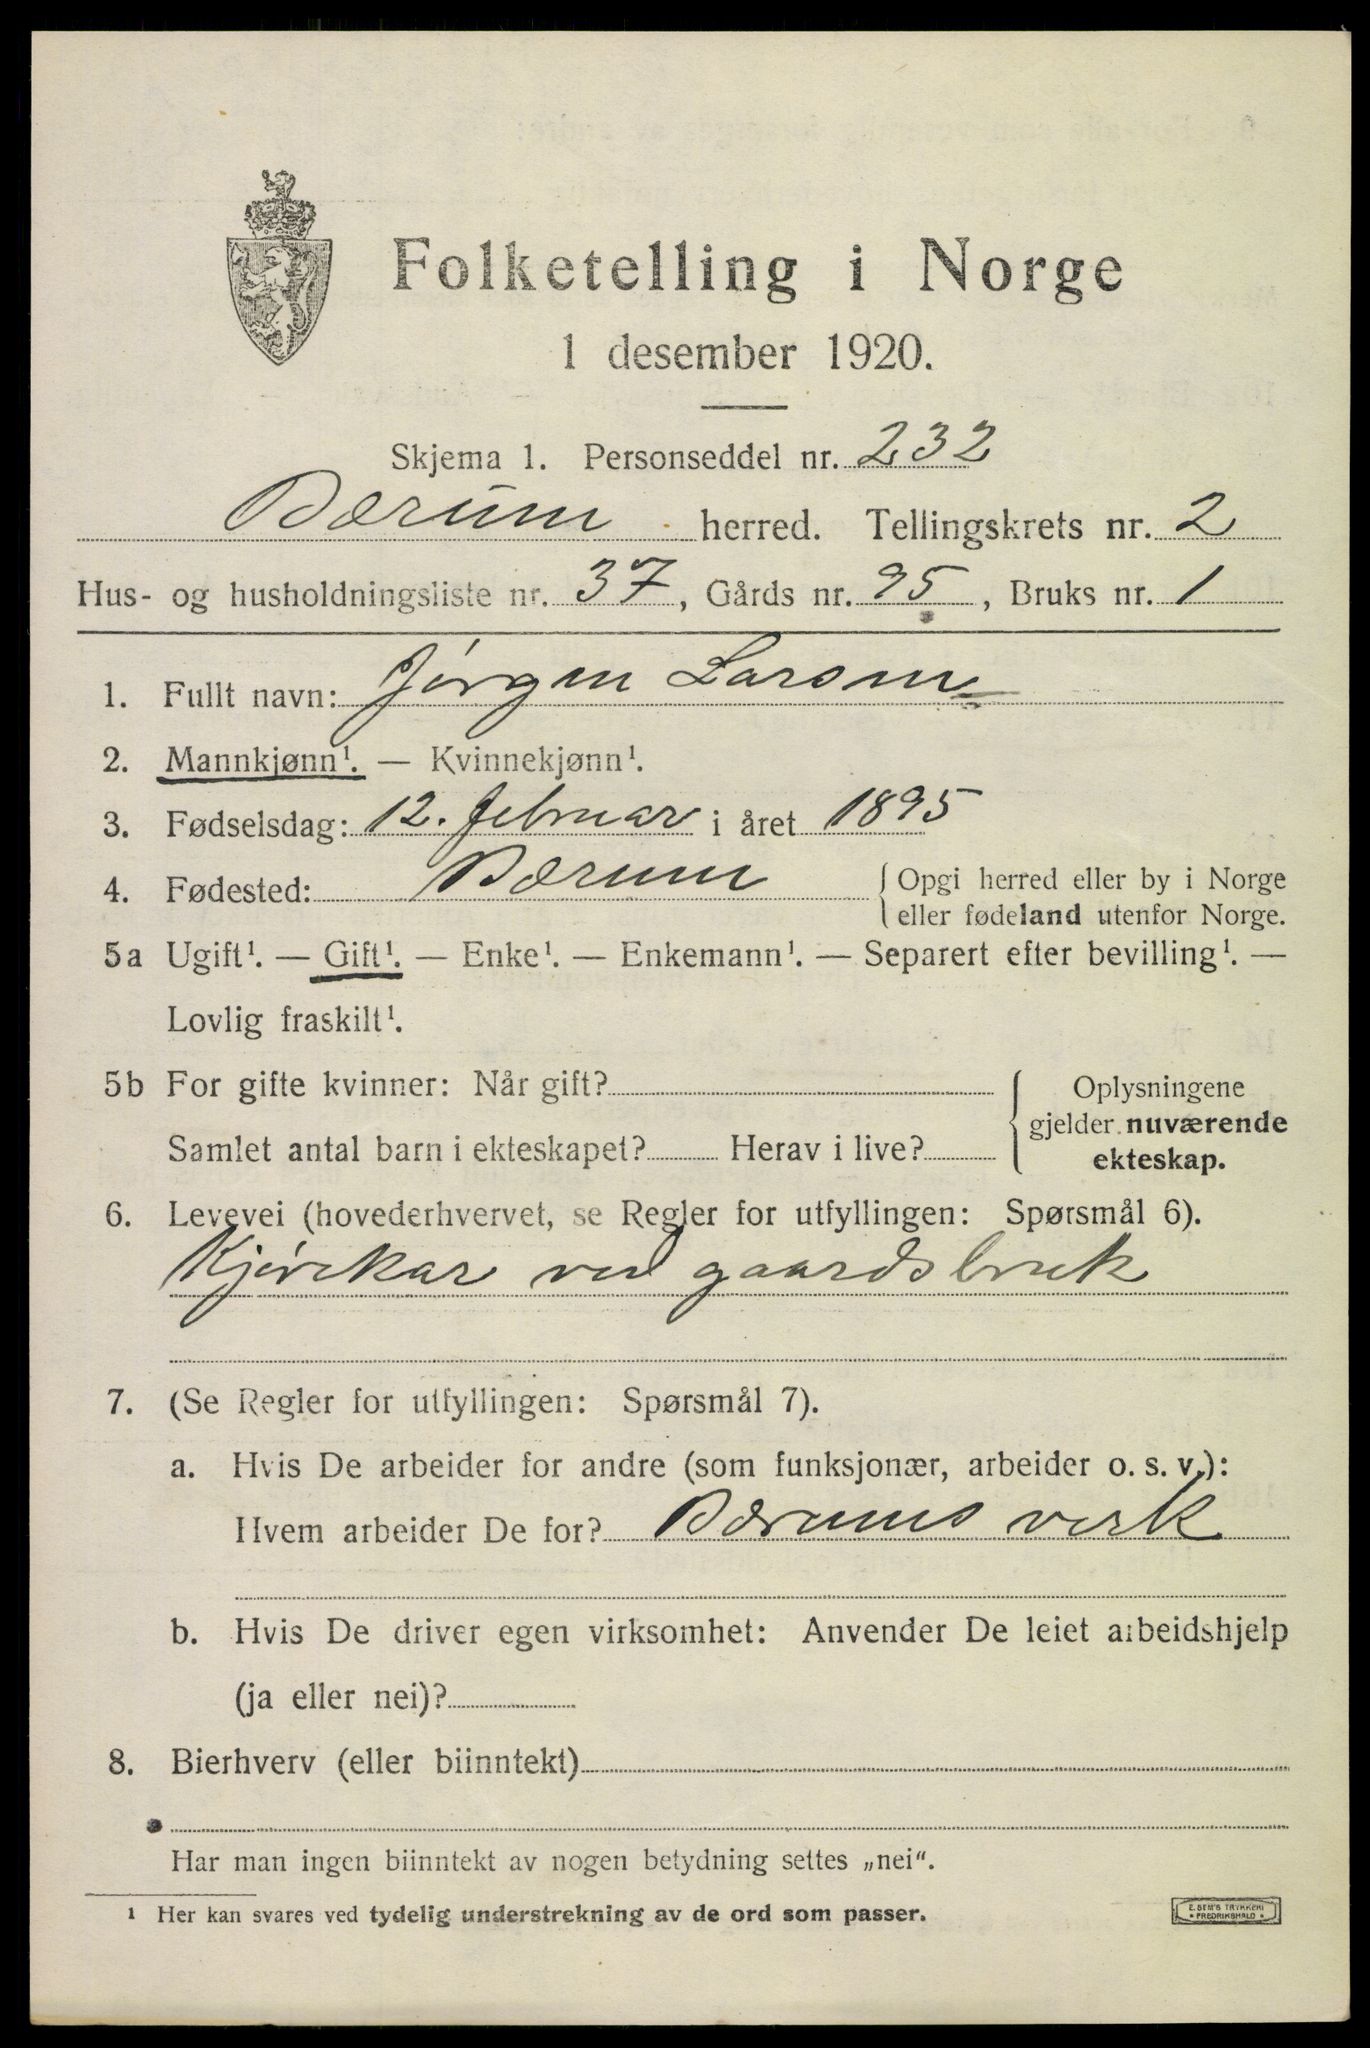 Folketelling i Norge
1 desember 1920.
Skjema 1. Personseddel nr. 232
Bærum herred. Tellingskrets nr. 2
Hus- og husholdningsliste nr. 37, Gårds nr. 95, Bruks nr. 1
1. Fullt navn: Jørgen Larsen
2. Mannkjønn¹. — Kvinnekjønn¹.
3. Fødselsdag: 12. februar i året 1895
4. Fødested: Bærum { Opgi herred eller by i Norge
eller fødeland utenfor Norge.
5a Ugift¹. — Gift¹. — Enke¹. — Enkemann¹. — Separert efter bevilling¹. —
Lovlig fraskilt¹.
5b For gifte kvinner: Når gift? { Oplysningene
gjelder nuværende
Samlet antal barn i ekteskapet? Herav i live? ekteskap.
6. Levevei (hovederhvervet, se Regler for utfyllingen: Spørsmål 6).
Kjørekar ved gaardsbruk
7. (Se Regler for utfyllingen: Spørsmål 7).
a. Hvis De arbeider for andre (som funksjonær, arbeider o. s. v.):
Hvem arbeider De for? Bærums verk
b. Hvis De driver egen virksomhet: Anvender De leiet arbeidshjelp
(ja eller nei)?
8. Bierhverv (eller biinntekt)
Har man ingen biinntekt av nogen betydning settes „nei“.
¹ Her kan svares ved tydelig understrekning av de ord som passer.
E. SEM'S TRYKKERI
• FREDRIKSHALD •